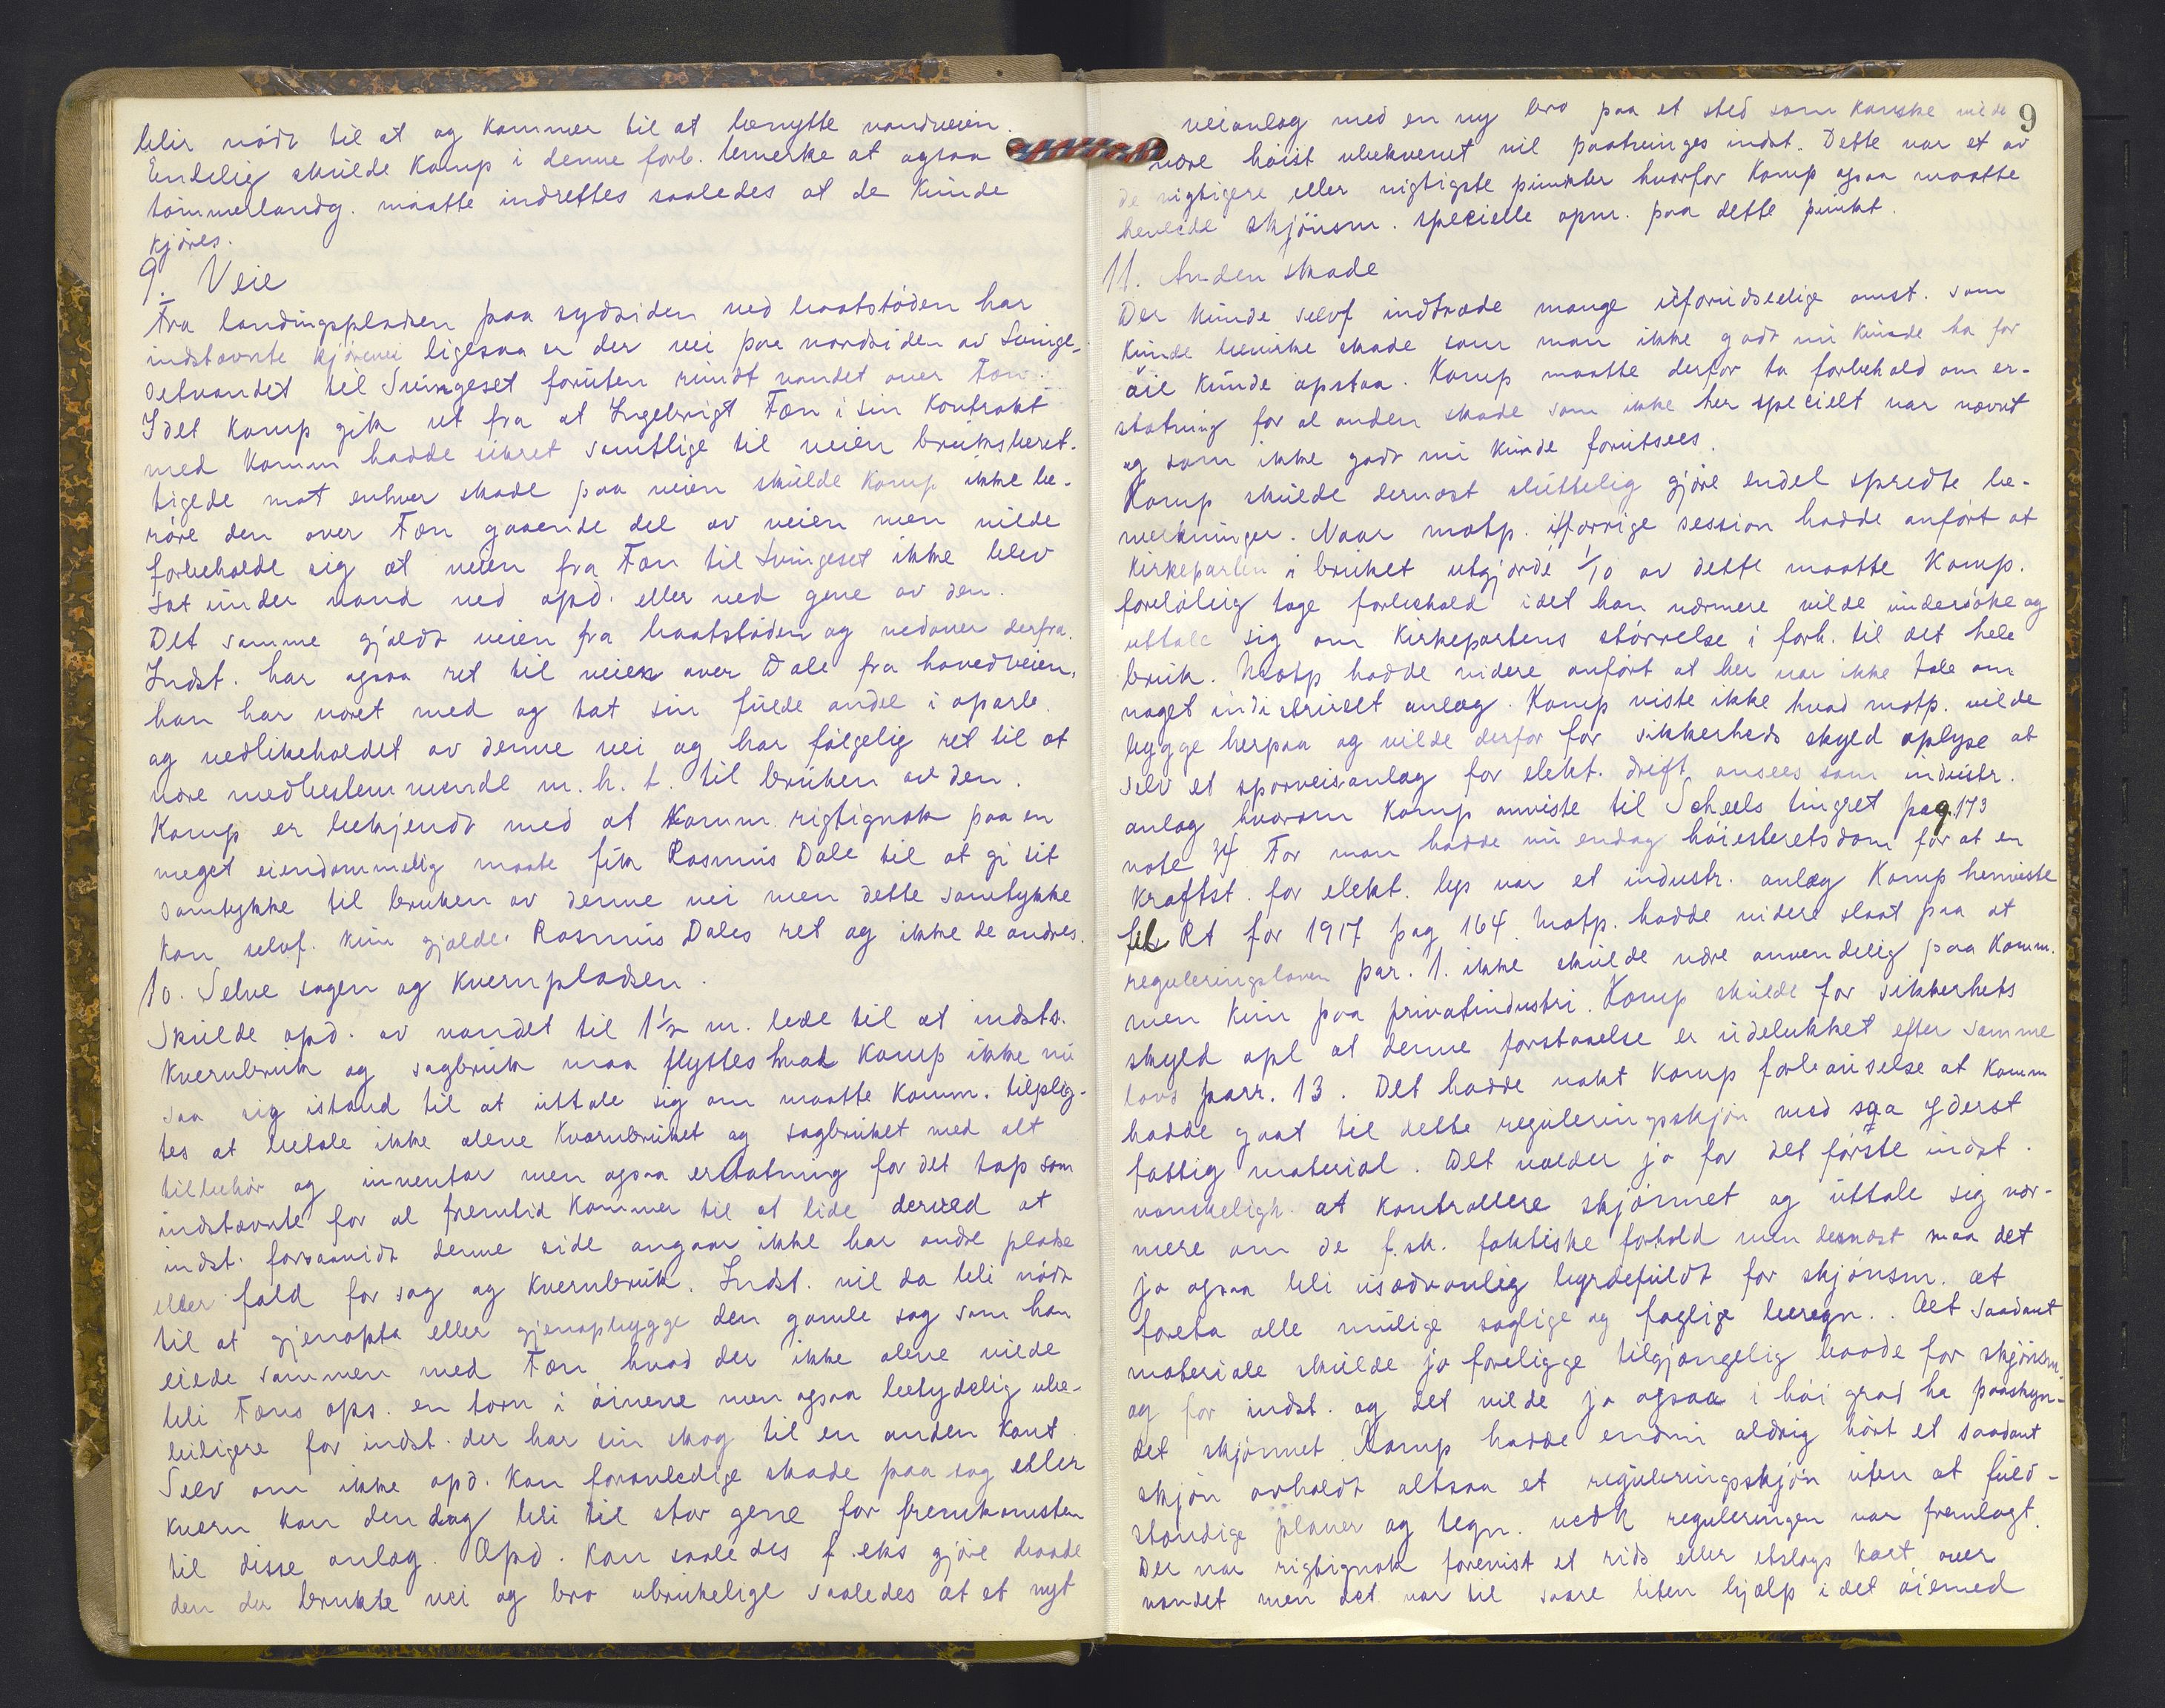 blir nødt til at og kommer til at benytte vandveien.
Endelig skulde Komp i denne forb. bemerke at ogsaa
tömmerlandg. maatte indrettes saaledes at de kunde
kjöres.
9. Veie
Fra landingspladsen paa sydsiden ved baatstöden har
indstevnte kjörevei ligesaa er der vei paa nordsiden av Svinge-
setvandet til Svingeset foruten rundt vandet over Fæn.
Idet Komp gik ut fra at Ingebrigt Fæn i sin kontrakt
med komm hadde sikret samtlige til veien bruksberet-
tigede mot enhver skade paa veien skulde Komp ikke be-
röre den over Fæn gaaende del av veien men vilde
forbeholde sig at veien fra Fæn til Svingeset ikke blev
sat under vand ved opd. eller ved gene av den.
Det samme gjældt veien fra baatstöden og nedover derfra.
Indst. har ogsaa ret til veien over Dale fra hovedveien,
han har været med og tat sin fulde andel i oparb.
og vedlikeholdet av denne vei og har fölgelig ret til at
være medbestemmende m. h. t. til bruken av den.
Komp er bekjendt med at Komm. rigtignok paa en
meget eiendommelig maate fik Rasmus Dale til at gi sit
samtykke til bruken av denne vei men dette samtykke
kan selvf. kun gjælde Rasmus Dales ret og ikke de andres.
10. Selve sagen og kvernpladsen.
Skulde opd. av vandet til 1½ m. lede til at indsts.
kvernbruk og sagbruk maa flyttes hvad Komp ikke nu
saa sig istand til at uttale sig om maatte Komm. tilplig-
tes at betale ikke alene kvernbruket og sagbruket med alt
tilbehör og inventar men ogsaa erstatning for det tap som
indstævnte for al fremtid kommer til at lide derved at
indst. forsaavidt denne side angaar ikke har andre pladse
eller fald for sag og kvernbruk. Indst. vil da bli nödt
til at gjenopta eller gjenopbygge den gamle sag som han
eiede sammen med Fæn hvad der ikke alene vilde
bli Fæns ops. en torn i öinene men ogsaa betydelig ube-
leiligere for indst. der har sin skog til en anden kant.
Selv om ikke opd. kan foranledige skade paa sag eller
kvern kan den dog bli til stor gene for fremkomsten
til disse anlæg. Opd. kan saaledes f.eks gjöre baade
den der brukte vei og bro ubrukelige saaledes at et nyt
9
veianlæg med en ny bro paa et sted som kanske vilde
være höist ubekvemt vil paatvinges indst. Dette var et av
de vigtigere eller vigtigste punkter hvorfor Komp ogsaa maatte
henlede skjönsm. specielle opm. paa dette punkt.
11. Anden skade
Der kunde selvf indtræde mange uforudseelige omst. som
kunde bevirke skade som man ikke godt nu kunde ha for
öie kunde opstaa. Komp maatte derfor ta forbehold om er-
statning for al anden skade som ikke her specielt var nævnt
og som ikke godt nu kunde forutsees.
Komp skulde dernæst sluttelig gjöre endel spredte be-
merkninger. Naar motp. i forrige session hadde anfört at
kirkeparten i bruket utgjorde 1/10 av dette maatte Komp.
forelöbig tage forbehold idet han nærmere vilde undersöke og
uttale sig om kirkepartens störrelse i forh. til det hele
bruk. Motp hadde videre anfört at her var ikke tale om
noget industrielt anlæg. Komp viste ikke hvad motp. vilde
bygge herpaa og vilde derfor for sikkerheds skyld oplyse at
selv et sporveisanlæg for elekt. drift ansees som industr.
anlæg hvorom Komp anviste til Scheels tingret pag 173
note 34 For man hadde nu endog höiesteretsdom for at en
kraftst. for elekt. lys var et industr. anlæg Komp henviste
til Rt for 1917 pag 164. Motp. hadde videre slaat paa at
reguleringsloven par. 1. ikke skulde være anvendelig paa Komm.
men kun paa privatindustri. Komp skulde for sikkerhets
skyld opl at denne forstaaelse er udelukket efter samme
lovs parr. 13. Det hadde vakt Komp forbauselse at Komm
hadde gaat til dette reguleringsskjön med saa yderst
fattig material. Det volder jo for det förste indst.
vanskeligh. at kontrollere skjönnet og uttale sig nær-
mere om de f.sk. faktiske forhold men dernæst maa det
jo ogsaa bli usædvanlig byrdefuldt for skjönsm. at
foreta alle mulige saglige og faglige beregn.. Alt saadant
materiale skulde jo foreligge tilgjængelig baade for skjönsm.
og for indst. og det vilde jo ogsaa i höi grad ha paaskyn-
det skjönnet. Komp hadde endnu aldrig hört et saadant
skjön avholdt altsaa et reguleringsskjön uten at fuld-
stændige planer og tegn. vedk reguleringen var fremlagt.
Der var rigtignok forevist et rids eller etslags kart over
vandet men det var til saare liten hjælp i det öiemed